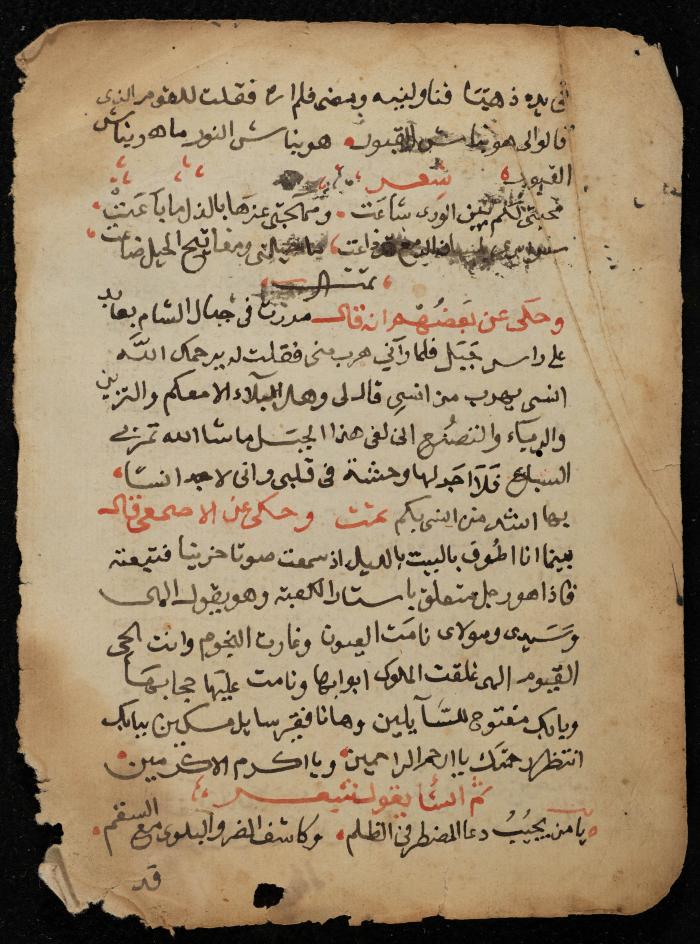 في يده ذهبيا فناولنيه ومضى فلم اره فقلت للقوم الذي
قالوا لى هو نباش القبور هو نباش النور ما هو نباش
القبور شعر
محبتى لكم بين الورى شاعت ومهجتى عزها بالذل ما باعت
ومفاتيح الحيل ضاعت
تمت
وحكى عن بعضهم انه قال مررت فى جبال الشام بعابد
على راس جبل فلما رآني هرب منى فقلت له يرحمك الله
انسى يهرب من انسى قال لى وهل البلاء الا معكم والتزين
والرياء والتصنع الى لفى هذا الجبل ما شا الله تمر بى
السباع فلا اجد لها وحشة فى قلبى وانى لا جد انسا
بها اشد من انسى بكم تمت وحكى عن الاصمعى قال
بينما انا اطوف بالبيت بالليل اذ سمعت صوتا حزينا فتبعته
فاذا هو رجل متعلق باستار الكعبة وهو يقول الهى
وسيدى ومولاى نامت العيون وغارت النجوم وانت الحى
القيوم الهى غلقت الملوك ابوابها ونامت عليها حجابها
وبابك مفتوح للسآيلين وها انا فقير سايل مسكين ببابك
انتظر رحمتك يا ارحم الراحمين ويا اكرم الاكرمين
ثم انشا يقول شعر
يا من يجيب دعا المضطر فى الظلم وكاشف الضر والبلوى مع السقم
قد